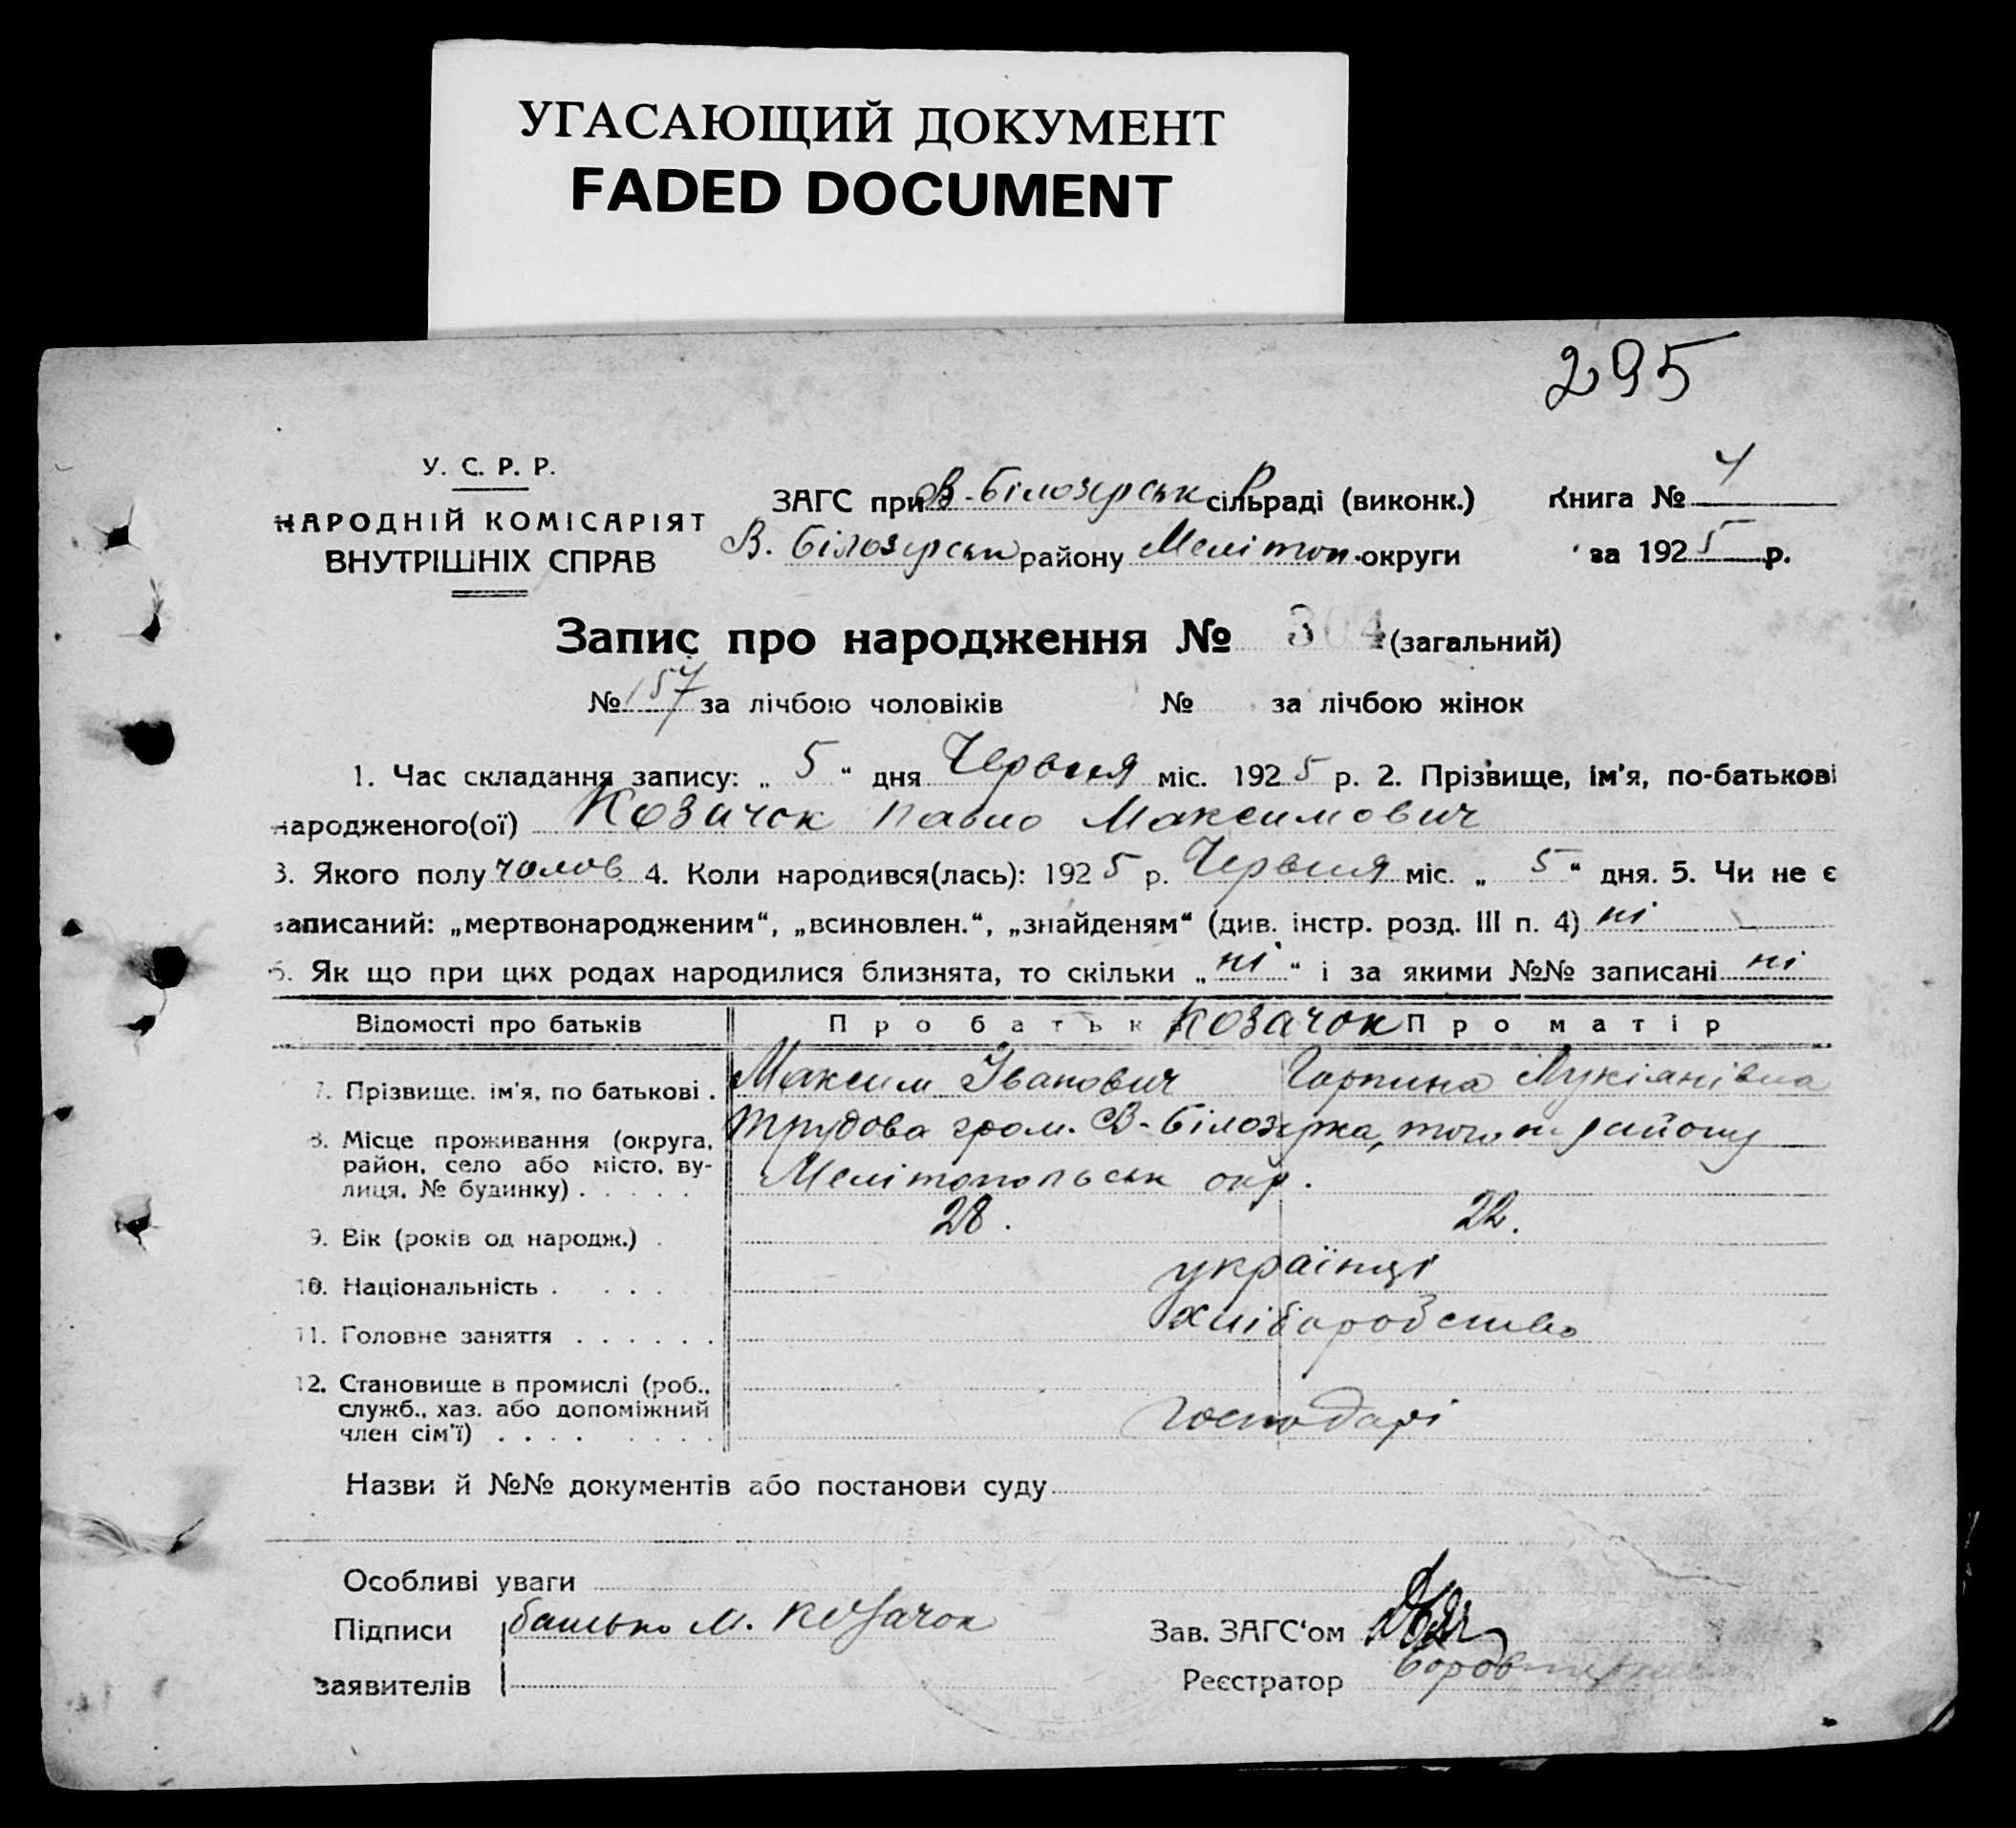 УГАСАЮЩИЙ ДОКУМЕНТ
FADED DOCUMENT
295
У. С. Р. Р.
НАРОДНІЙ КОМІСАРІЯТ
ВНУТРІШНІХ СПРАВ
ЗАГС при В-Білозерськ сільраді (виконк.)
В. Білозерськ району Мелітоп. округи
Книга №
за 1925 р.
Запис про народження № 304 (загальний)
№ 157 за лічбою чоловіків № за лічбою жінок
1. Час складання запису: „ 5 “ дня Червня міс. 1925 р. 2. Прізвище, ім'я, по-батькові
народженого(ої) Козачок Павло Максимович
3. Якого полу чолов 4. Коли народився(лась): 1925 р. Червня міс. „ 5 “ дня. 5. Чи не є
записаний: „мертвонародженим“, „всиновлен.“, „знайденям“ (див. інстр. розд. III п. 4) ні
6. Як що при цих родах народилися близнята, то скільки „ ні “ і за якими №№ записані ні
Відомості про батьків Про батьк Козачок Про матір
7. Прізвище, ім'я, по батькові . Максим Іванович Горпина Лукіянівна
8. Місце проживання (округа, район, село або місто, вулиця, № будинку) . . . . .
Трудова гром. В-Білозерка, району
Мелітопольськ окр.
9. Вік (років од народж.) . 28. 22.
10. Національність . . . . . українці
11. Головне заняття . . . . . . хліборобство
12. Становище в промислі (роб., служб., хаз. або допоміжний член сім'ї) . . . . . . . . господарі
Назви й №№ документів або постанови суду
Особливі уваги
Підписи батько М. Козачок Зав. ЗАГС'ом
заявителів Реєстратор